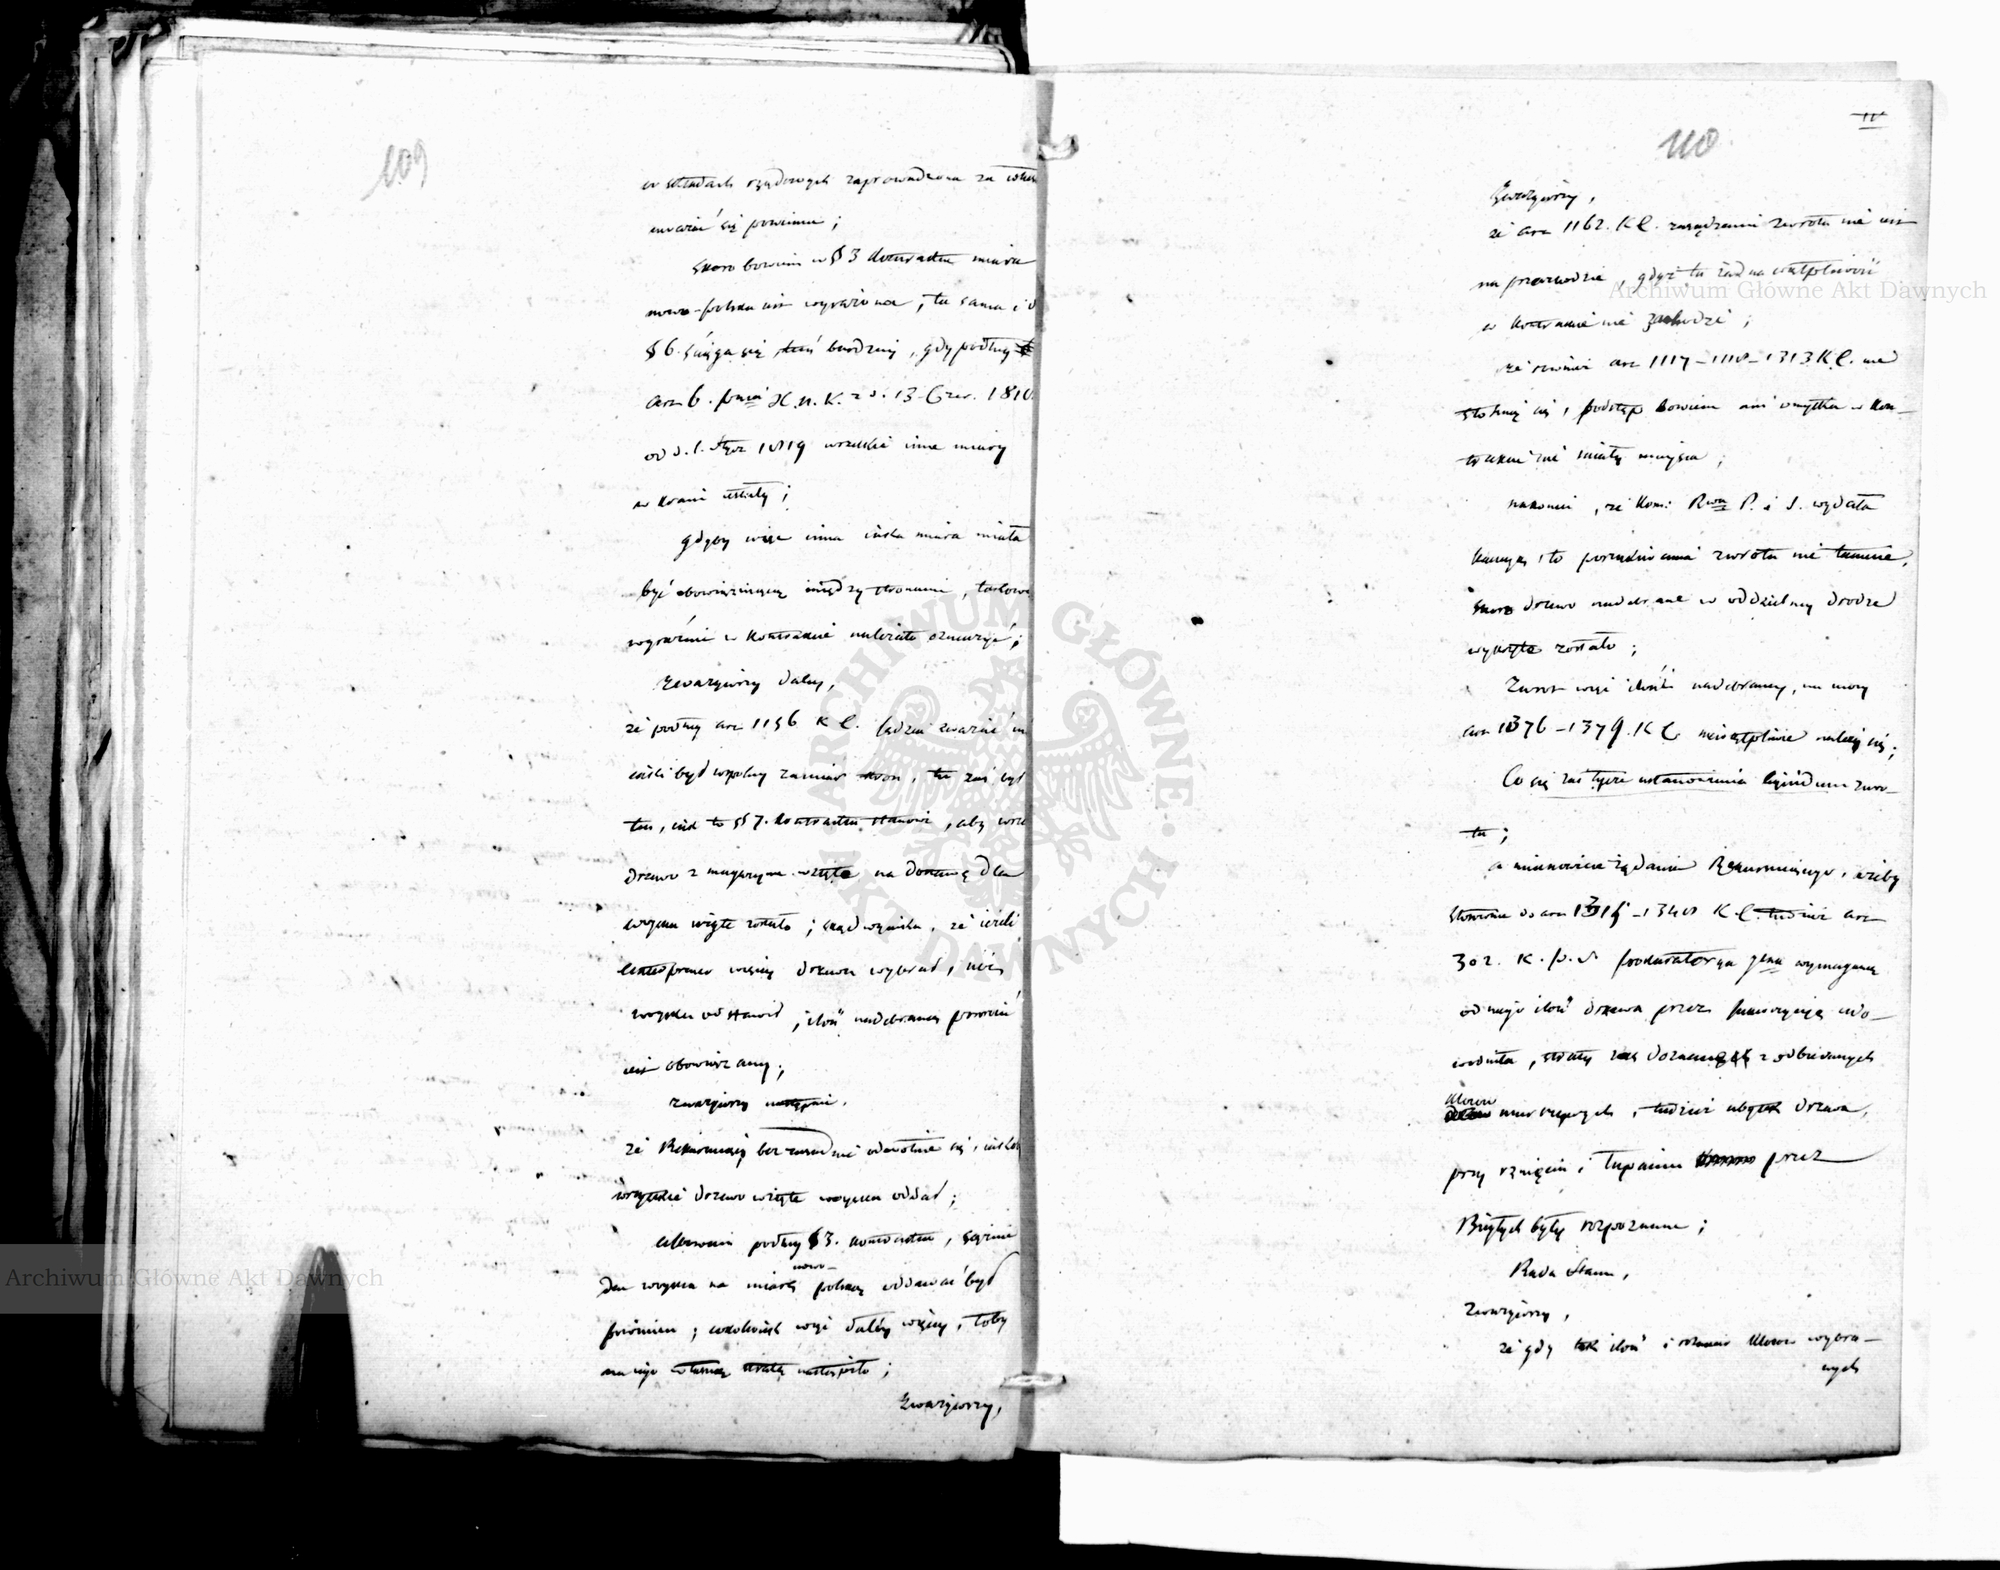 109
w składach rządowych zaprowadzona za
uważać się powinna;
skoro bowiem w § 3 kontraktu miara
nowo-polska iest wyrażona, ta sama i
§ 6. ściąga się gdy podług
art 6. X. N. K. z d. 13 Czer. 181
od d. 1. Stycz 1819 wszelkie inne miary
w kraiu ustały;
gdyby więc inna iaka miara miała
być obowiązuiącą między stronami,
wyraźnie w kontrakcie należało oznaczyć;
Zważywszy daley,
że podług art 1156 K C. sędzia zważać
iaki był wspólny zamiar stron, ten zaś był
ten, iak to § 7. kontraktu stanowi, aby
drzewo z magazynu wzięte na dostawę dla
woyska wzięte zostało; skąd wynika, że ieżeli
więcey drzewa wybrał, niż
woysku odstawił, ilość nadebraną
iest obowiązany;
zważywszy następnie,
że Rekurruiący bezzasadnie odwołuie się,
wszystkie drzewo wzięte woysku oddał;
albowiem podług § 3. kontraktu, sążnie
nowo-
dla woyska na miarę polską oddawać był
powinien; cokolwiek więc dałby więcey, toby
na iego własną stratę nastąpiło;
Zważywszy,
IV
110
Zważywszy,
że art 1162. K C. zarządzeniu zwrotu nie iest
na przeszkodzie, gdyż tu żadna wątpliwość
w kontrakcie nie zachodzi;
że również art 1117 – 1118 – 1313 K C. nie
stosuią się, podstęp bowiem ani omyłka w kon-
trakcie nie miały mieysca;
nakoniec, że Kom: Rwa P. i S. wydała
kaucyą, to poszukiwania zwrotu nie tamuie,
skoro drzewo nadebrane w oddzielney drodze
wykryte zostało;
Zwrot więc ilości nadebraney, na mocy
art 1376 – 1379. K C. niewątpliwie należy się;
Co się zaś tycze ustanowienia liquidum zwro-
tu;
a mianowicie żądania Rekurruiącego, ażeby
stosownie do art 1315 – 1348 K C. tudzież art
302. K. p. s. Prokuratorya Jlna wymaganą
od niego ilość drzewa przez udo-
wodniła, straty zaś doznane z odbieranych
kloców
murszywych, tudzież ubytek drzewa,
przy rznięciu i łupaniu przez
Biegłych były rozpoznane;
Rada Stanu,
Zważywszy,
że gdy tak ilość i rozmiar kloców wybra-
nych